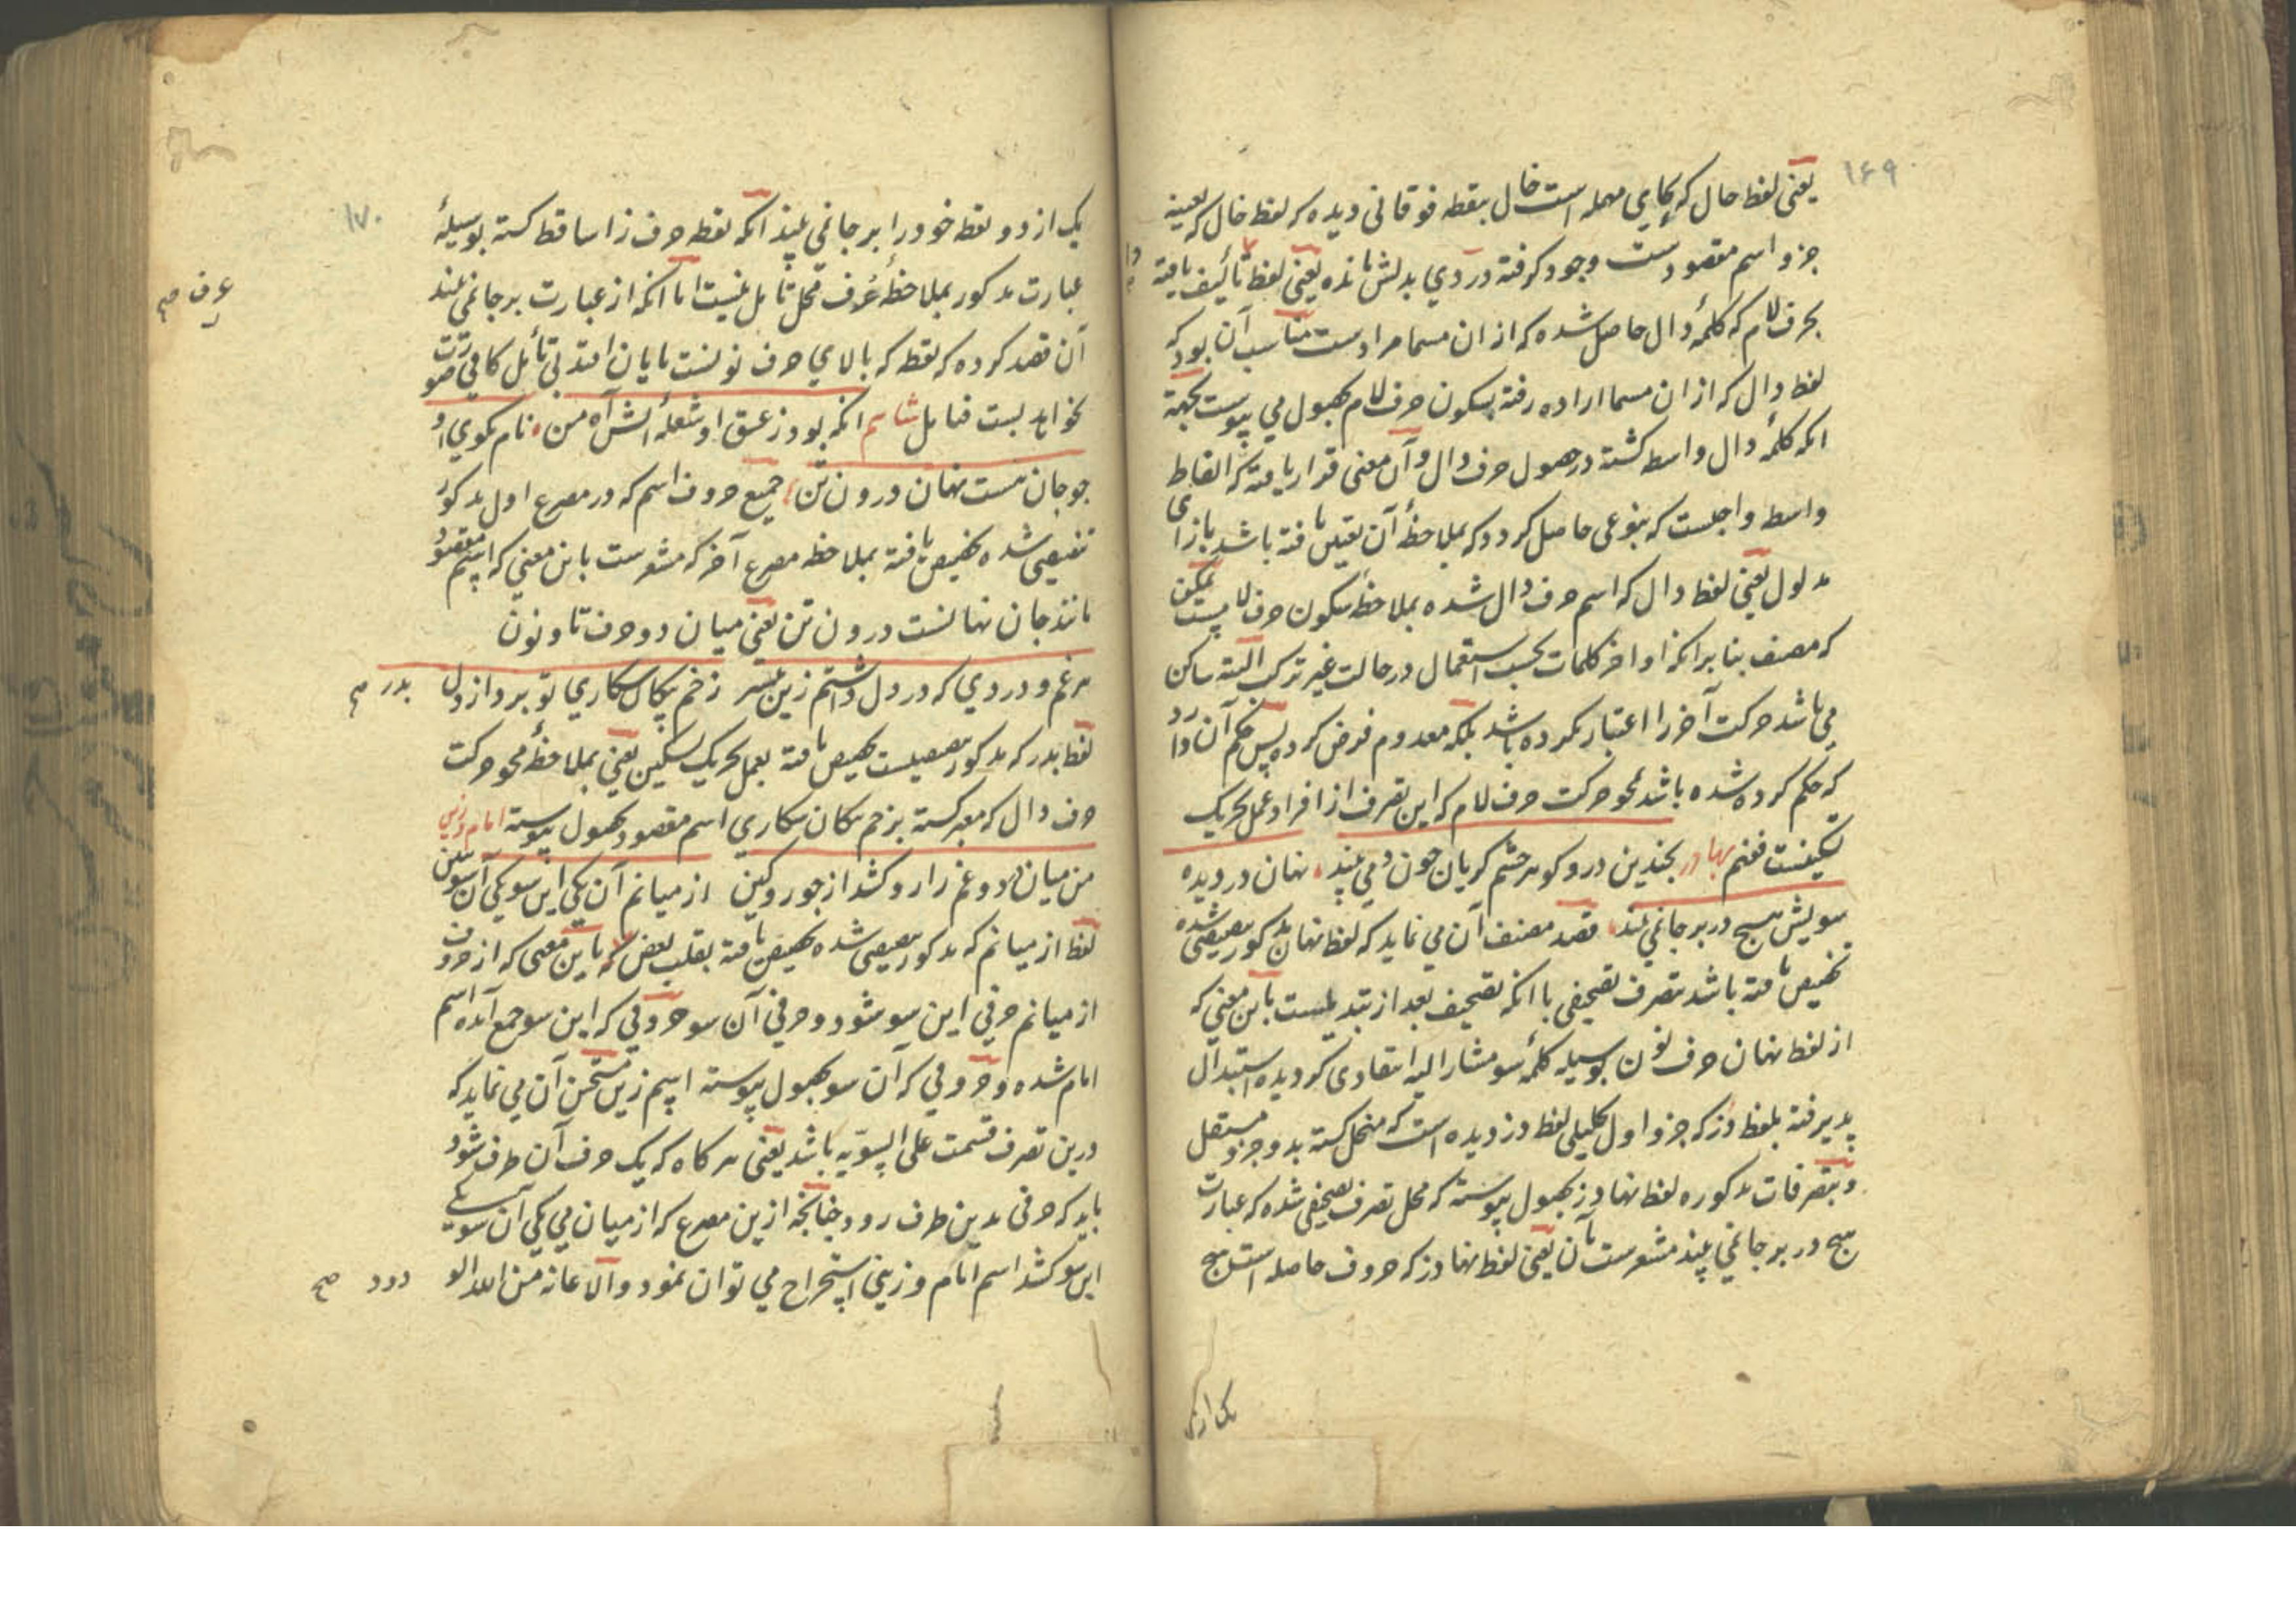 ۱۶۹
یعنی لفظ حال که بحای مهمله است خال بنقطه فوقانی دیده که لفظ خال که بعینه
جزو اسم مقصودست وجود گرفته در دی بدلش مانده یعنی لفظ تألیف یافته
بحرف لام که کلمهٔ دال حاصل شده که از ان مسما مرادست مناسب آن بود که
لفظ دال که از ان مسما اراده رفته بسکون حرف لام بحصول می پیوست بجهة
انکه کلمهٔ دال واسطه کشته در حصول حرف دال و آن معنی قرار یافته که الفاظ
واسطه واجبست که بنوعی حاصل کردد که بملاحظهٔ آن تعین یافته باشد بازای
مدلول یعنی لفظ دال که اسم حرف دال شده بملاحظهٔ سکون حرف لامست
که مصنف بنابر انکه اواخر کلمات بحسب استعمال در حالت غیر ترکیب البته ساکن
می باشد حرکت آخر را اعتبار نکرده باشد بلکه معدوم فرض کرده پس حکم آن دارد
که حکم کرده شده باشد بمحو حرکت حرف لام که این تصرف از افراد عمل تحریک
تسکینست فغنم بهادر بچندین در و کوهر چشم کریان چون می بیند نهان در دیده
سویش هیچ دربر جا نمی بیند قصد مصنف آن می نماید که لفظ نهان مذکور تنصیصی شده
تخصیص یافته باشد بتصرف تصحیفی با انکه تصحیف بعد از تبدیلست باین معنی که
از لفظ نهان حرف نون بوسیله کلمهٔ سو مشار الیه انتقادی کردیده استبدال
پذیرفته بلفظ دز که جزو اول تحلیلی لفظ دزدیده است که منحل کشته بدو جزو مستقل
و بتصرفات مذکوره لفظ نهادز بحصول پیوسته که محل تصرف تصحیفی شده که عبارت
هیچ در بر جا نمی بیند مشعرست بآن یعنی لفظ نهادز که حروف حاصله است هیچ
یک از دو
۱۷۰
یک از دو نقطه خود را بر جا نمی بیند انکه نقطه حرف زا ساقط کشته بوسیلهٔ
عبارت مذکور بملاحظهٔ عُرف محل تأمل نیست اما انکه از عبارت بر جا نمی بیند
آن قصد کرده که نقطه که بالای حرف نونست پایان افتد بی تأمل کافی صورت
نخواهد بست فتأمل شاسم انکه بود ز عشق او شعلهٔ آتش آه من نام نکوی او
چو جان هست نهان درون تن جمیع حروف اسم که در مصرع اول مذکور
تنصیصی شده تخصیص یافته بملاحظه مصرع آخر که مشعرست باین معنی که اسم مقصود
مانند جان نهانست درون تن یعنی میان دو حرف تا و نون
هر غم و دردی که در دل داشتم زین پیشتر زخم پیکان شکاری تو برد از دل بدر صح
لفظ بدر که مذکور تنصیصیست تخصیص یافته بعمل تحریک تسکین یعنی بملاحظهٔ محو حرکت
حرف دال که معبر کشته بزخم پیکان شکاری اسم مقصود بحصول پیوسته امام و زینی
من میان درد و غم زار و کشد از جور و کین از میانم آن یکی این سو یکی آن سو
لفظ از میانم که مذکور تنصیصی شده تخصیص یافته بقلب بعض باین معنی که از حروف
از میانم حرفی این سو شود و حرفی آن سو حروفی که این سو جمع آمده اسم
امام شده و حروفی که آن سو بحصول پیوسته اسم زین مستحسن آن می نماید که
درین تصرف قسمت علی السویه باشد یعنی هر کاه که یک حرف آن طرف شود
باید که حرفی بدین طرف رود چنانچه ازین مصرع که از میان می یکی آن سو یکی
این سو کشد اسم امام و زینی استخراج می توان نمود والاعانه من الله الو دود صح
عرف صح